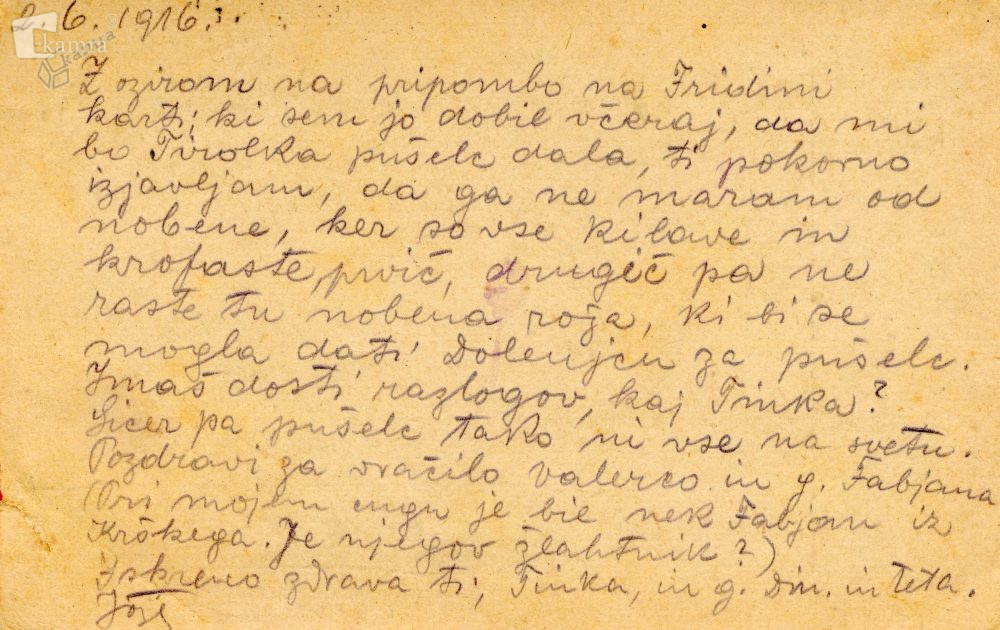 2. 6. 1916.
kamra
kamra
Z ozirom na pripombo na Fridini
karti, ki sem jo dobil včeraj, da mi
bo Tirolka pušelc dala, ti pokorno
izjavljam, da ga ne maram od
nobene, ker so vse kilave in
krofaste, prvič, drugič pa ne
raste tu nobena roža, ki bi se
mogla dati Dolenjcu za pušelc.
Imaš dosti razlogov, kaj Tinka?
Sicer pa pušelc tako ni vse na svetu.
Pozdravi za vračilo Valerco in g. Fabjana
(Pri mojem cugu je bil nek Fabjan iz
Krškega. Je njegov žlahtnik?)
Iskreno zdrava ti, Tinka, in g. Din. in teta.
Jože